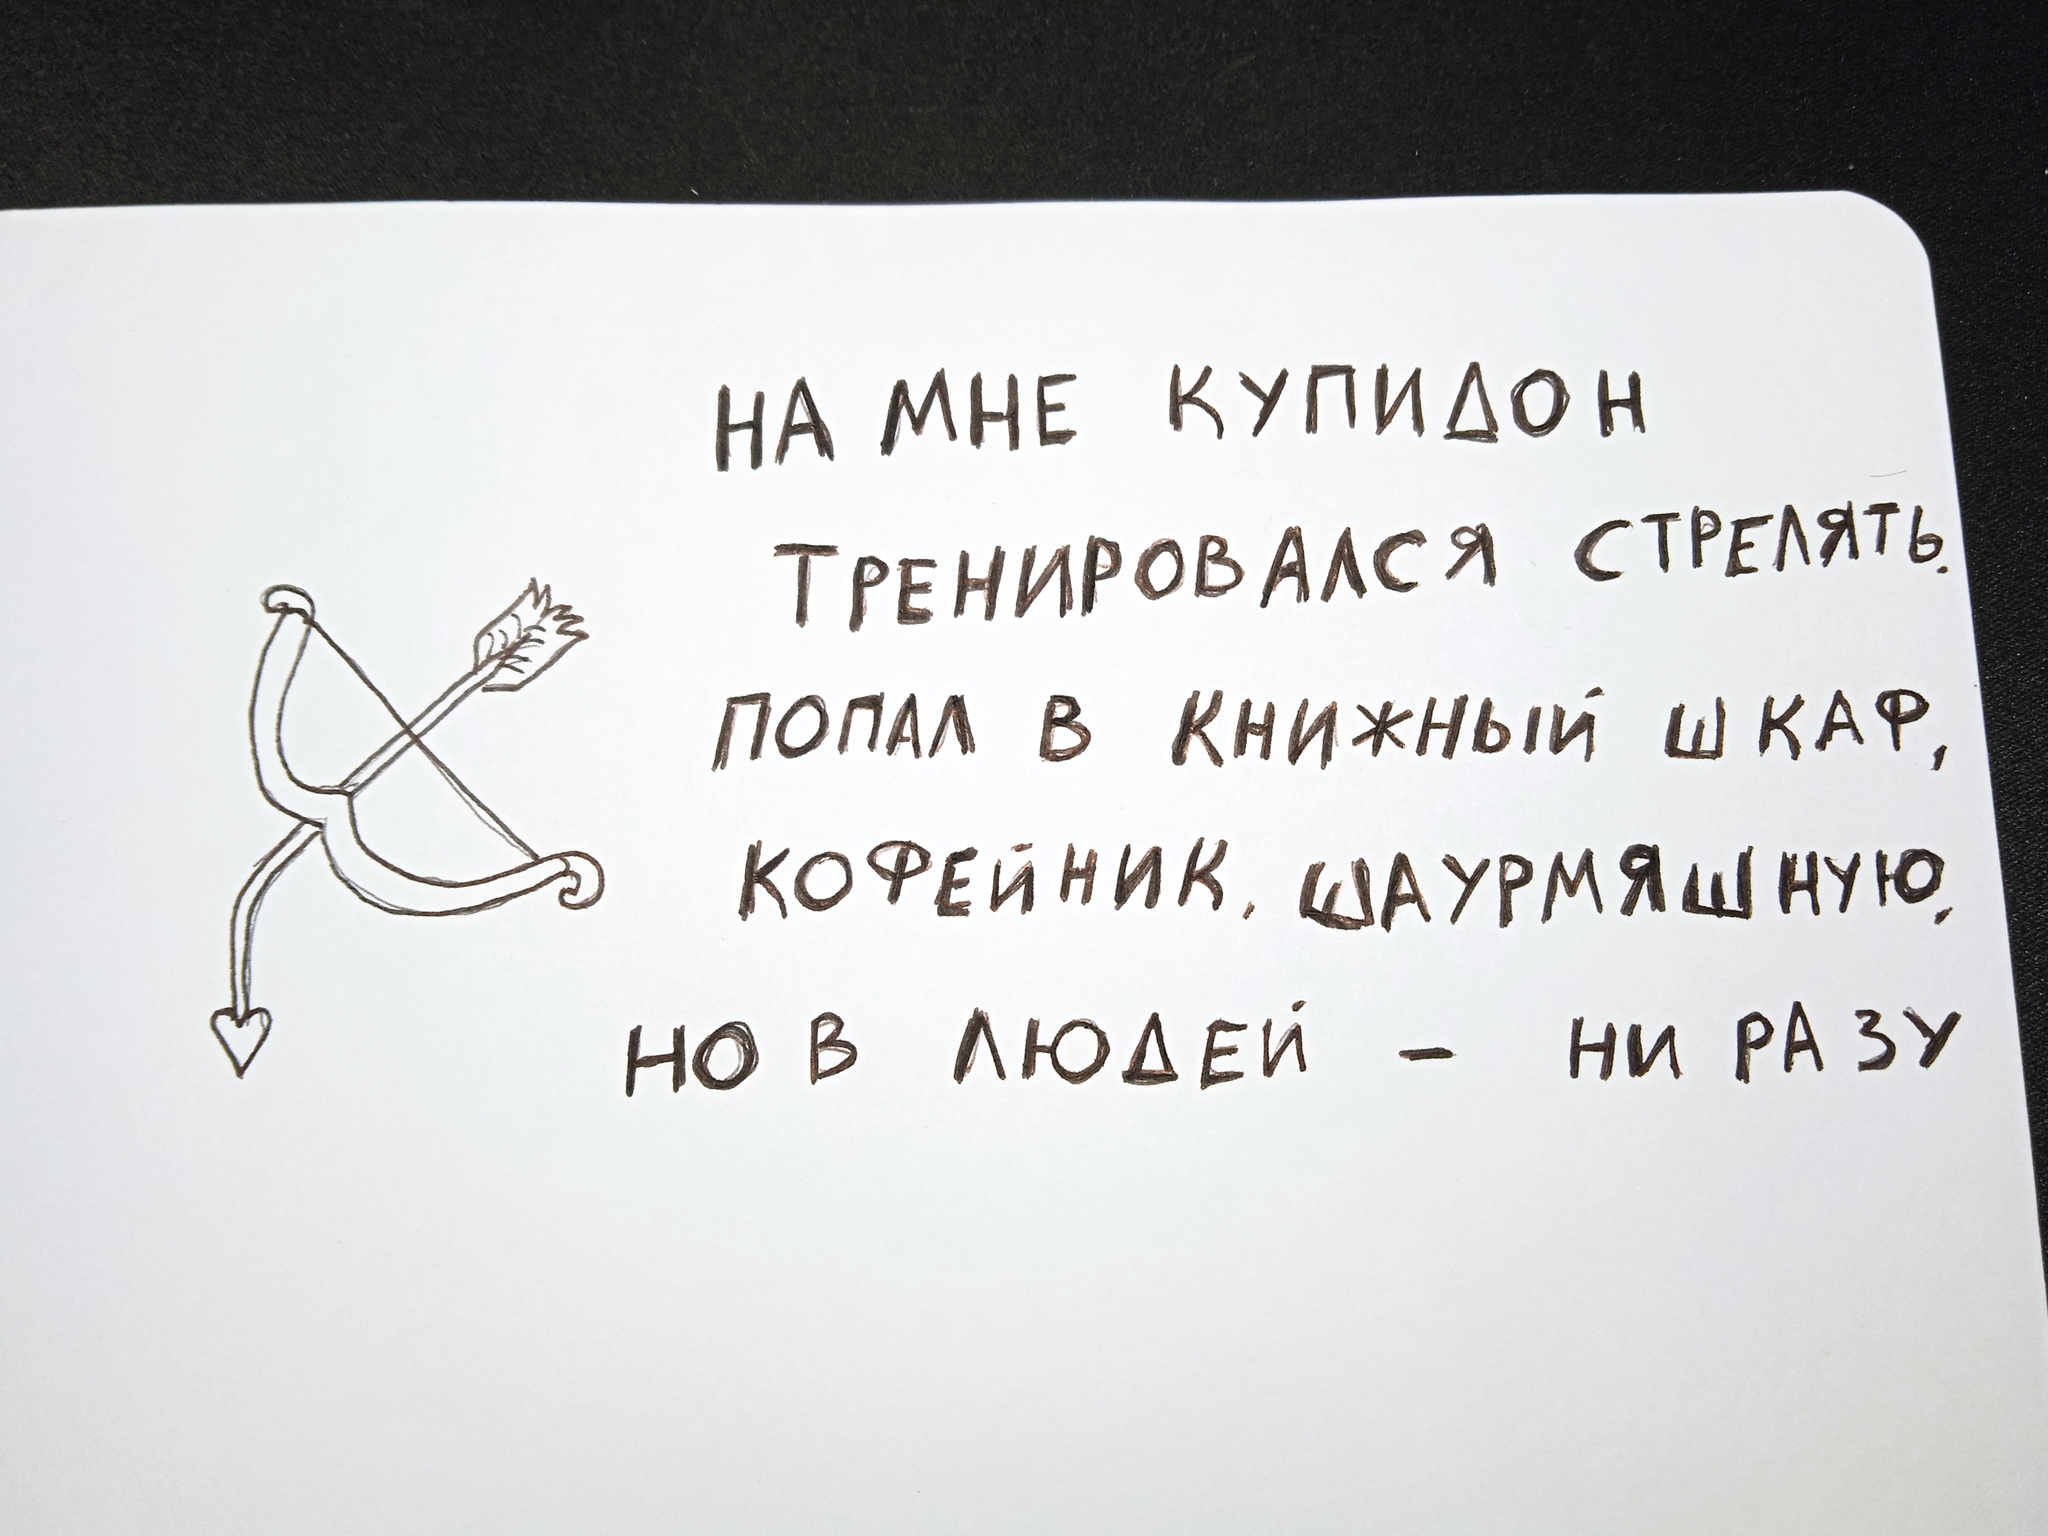 НА МНЕ КУПИДОН
ТРЕНИРОВАЛСЯ СТРЕЛЯТЬ.
ПОПАЛ В КНИЖНЫЙ ШКАФ,
КОФЕЙНИК, ШАУРМЯШНУЮ,
НО В ЛЮДЕЙ – НИ РАЗУ